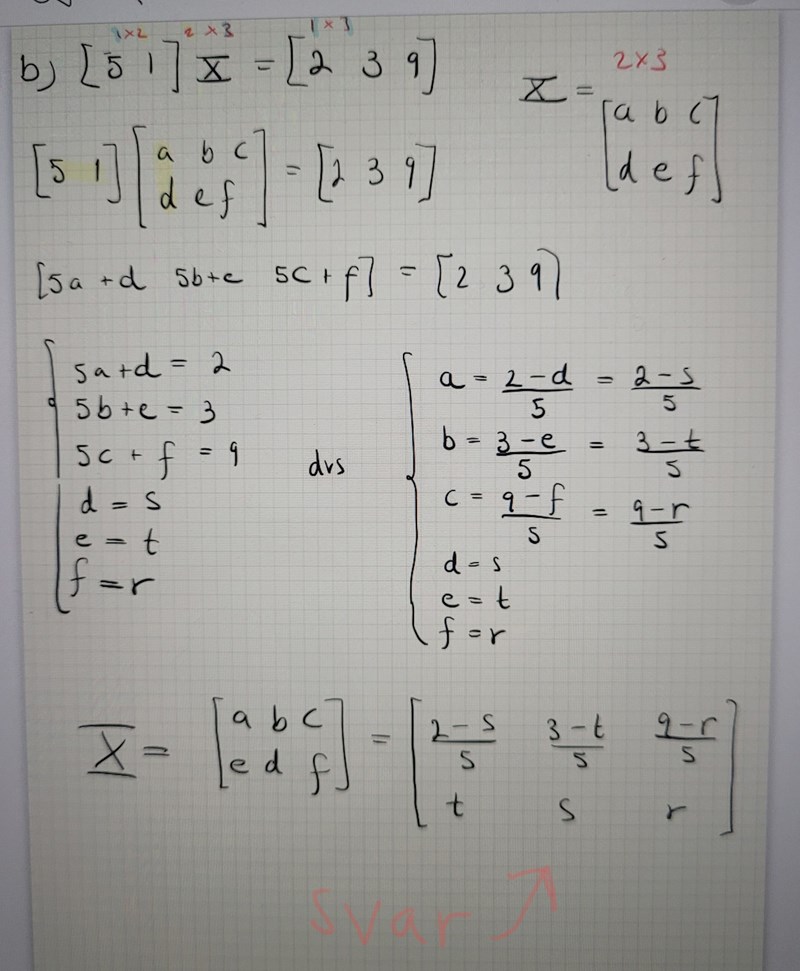 1×2 2×3 1×3
b) [5 1] X = [2 3 9]
2×3
X = [a b c
d e f]
[5 1] [a b c
d e f] = [2 3 9]
[5a+d 5b+e 5c+f] = [2 3 9]
5a+d = 2
5b+e = 3
5c+f = 9
d = s
e = t
f = r
dvs
a = 2-d/5 = 2-s/5
b = 3-e/5 = 3-t/5
c = 9-f/5 = 9-r/5
d = s
e = t
f = r
X = [a b c
e d f] = [2-s/5 3-t/5 9-r/5
t s r]
svar